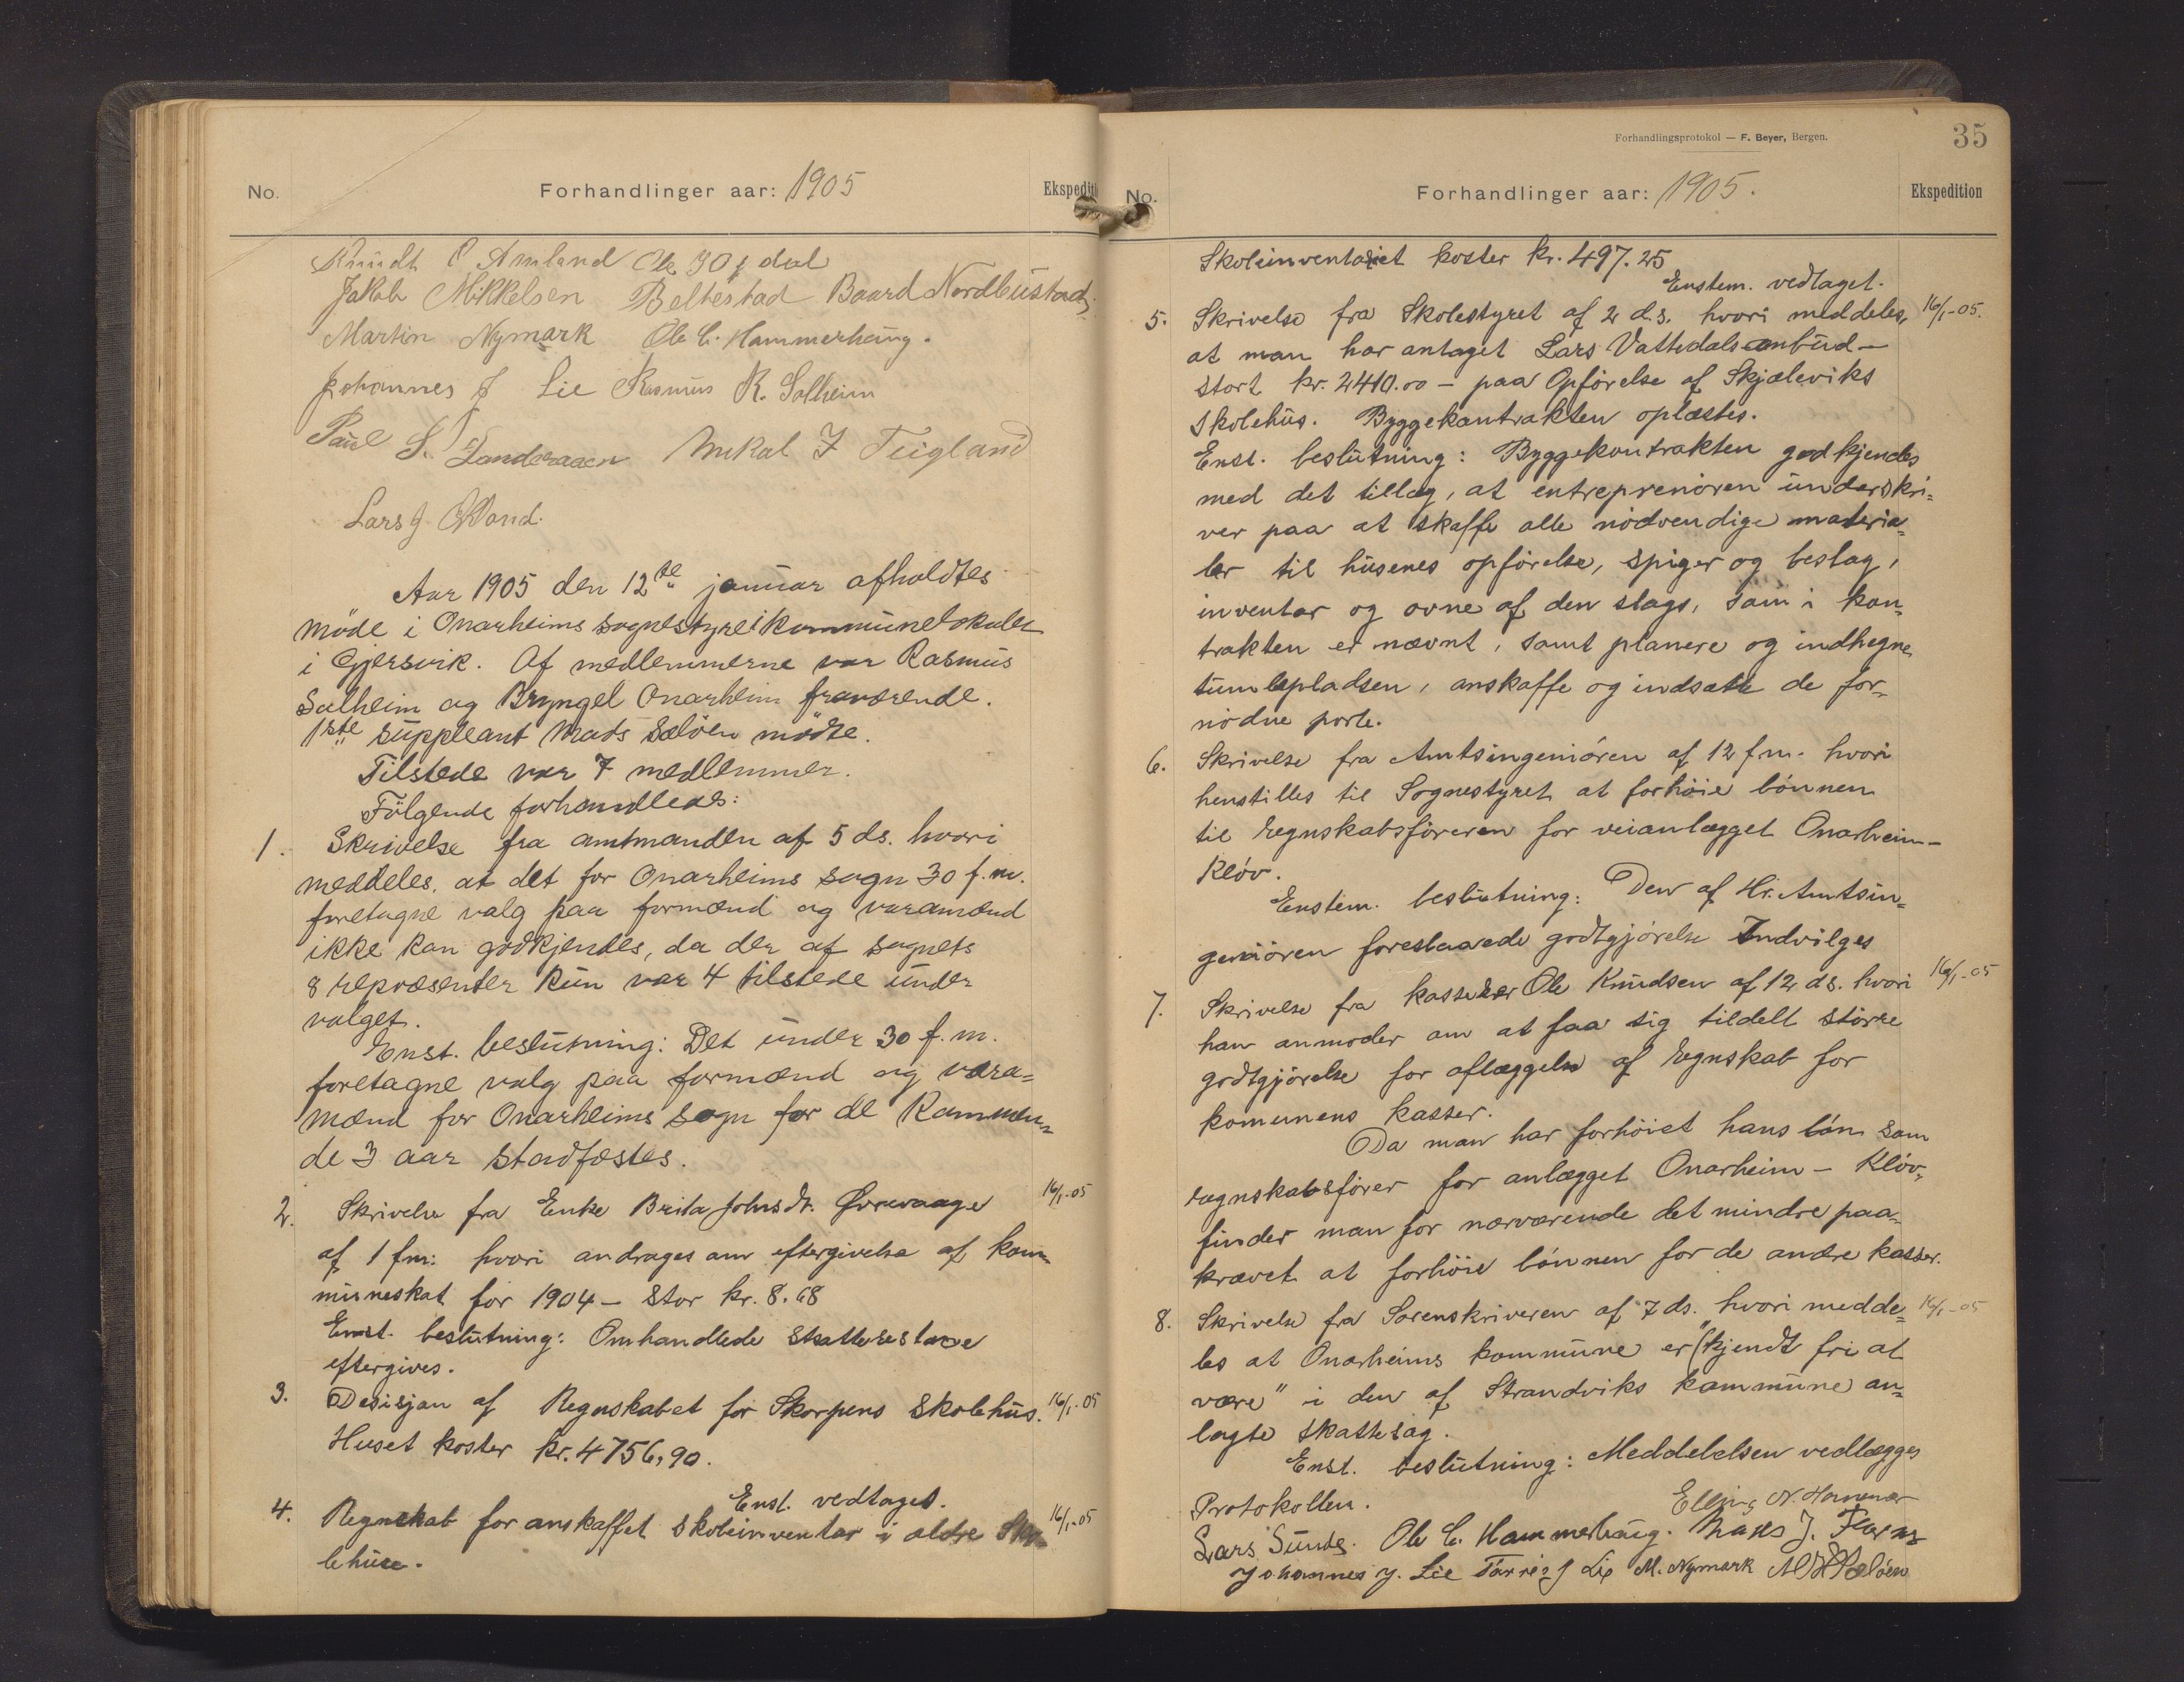 No. Forhandlinger aar: 1905 Ekspediti
Knudt O Amland Ole
Jakob Mikkelsen Beltestad Baard Nordbustad
Martin Nymark Ole C. Hammerhaug.
Johannes J Lie Rasmus R. Solheim
Paul S. Sanderaaen Mikal J Teigland
Lars J.
Aar 1905 den 12te januar afholdtes
møde i Onarheims sognestyre i kommunelokalet
i Gjersvik. Af medlemmerne var Rasmus
Salheim og Bryngel Onarheim fraværende.
1ste suppleant Mads Sæløen mødte.
Tilstede var 7 medlemmer.
Følgende forhandledes:
1. Skrivelse fra amtmanden af 5 ds. hvori
meddeles, at det for Onarheims sogn 30 f.m.
foretagne valg paa formænd og varamænd
ikke kan godkjendes, da der af sognets
8 repræsenter kun var 4 tilstede under
valget.
Enst. beslutning: Det under 30 f.m.
foretagne valg paa formænd og vara=
mænd for Onarheims sogn for de kommen=
de 3 aar stadfæstes.
2. Skrivelse fra Enke Brita Johnsdt. Øvrevaage 16/1-05
af 1 fm: hvori andrages om eftergivelse af kom=
muneskat for 1904 - stor kr. 8.68
Enst. beslutning: Omhandlede skatterestance
eftergives.
3. Desisjon af Regnskabet for Skorpens skolehus. 16/1-05
Huset koster kr. 4756,90.
Enst. vedtaget.
4. Regnskab for anskaffet skoleinventar i ældre Sko= 16/1-05
lehuse.
Forhandlingsprotokol — F. Beyer, Bergen. 35
No. Forhandlinger aar: 1905. Ekspedition
Skoleinventariet koster kr. 497.25
Enstem. vedtaget.
5. Skrivelse fra Skolestyret af 2 d.s. hvori meddeles, 16/1-05.
at man har antaget Lars Vattedals anbud -
stort kr. 2410.00 - paa Opførelse af Skjæleviks
skolehus. Byggekantrakten oplæstes.
Enst. beslutning: Byggekontrakten godkjendes
med det tillæg, at entreprenøren underskri=
ver paa at skaffe alle nødvendige materia=
ler til husenes opførelse, spiger og beslag,
inventar og ovne af den slags, som i kon=
trakten er nævnt, samt planere og indhegne
tumlepladsen, anskaffe og indsætte de for=
nødne porte.
6. Skrivelse fra Amtsingeniøren af 12 f.m. hvori
henstilles til Sognestyret at forhøie lønnen
til regnskabsføreren for veianlægget Onarheim-
Kløv.
Enstem. beslutning: Den af Hr. Amtsin=
geniøren foreslaaede godtgjørelse Indvilges
7. Skrivelse fra kasserer Ole Knudsen af 12 ds. hvori 16/1-05
han anmoder om at faa sig tildelt større
godtgjørelse for aflæggelse af regnskab for
komunens kasser.
Da man har forhøiet hans løn som
regnskabsfører for anlægget Onarheim - Kløv,
finder man for nærværende det mindre paa=
krævet at forhøie lønnen for de andre kasser.
8. Skrivelse fra Sorenskriveren af 7 ds. hvori medde= 16/1-05
les at Onarheims kommune er "kjendt fri at
være" i den af Strandviks kommune an=
lagte skattesag.
Enst. beslutning: Meddelelsen vedlægges
Protokollen. Elling N. Hammer
Lars Sunde. Ole C. Hammerhaug. J.
Johannes J. Lie Tørris J Lie M. Nymark Sæløen